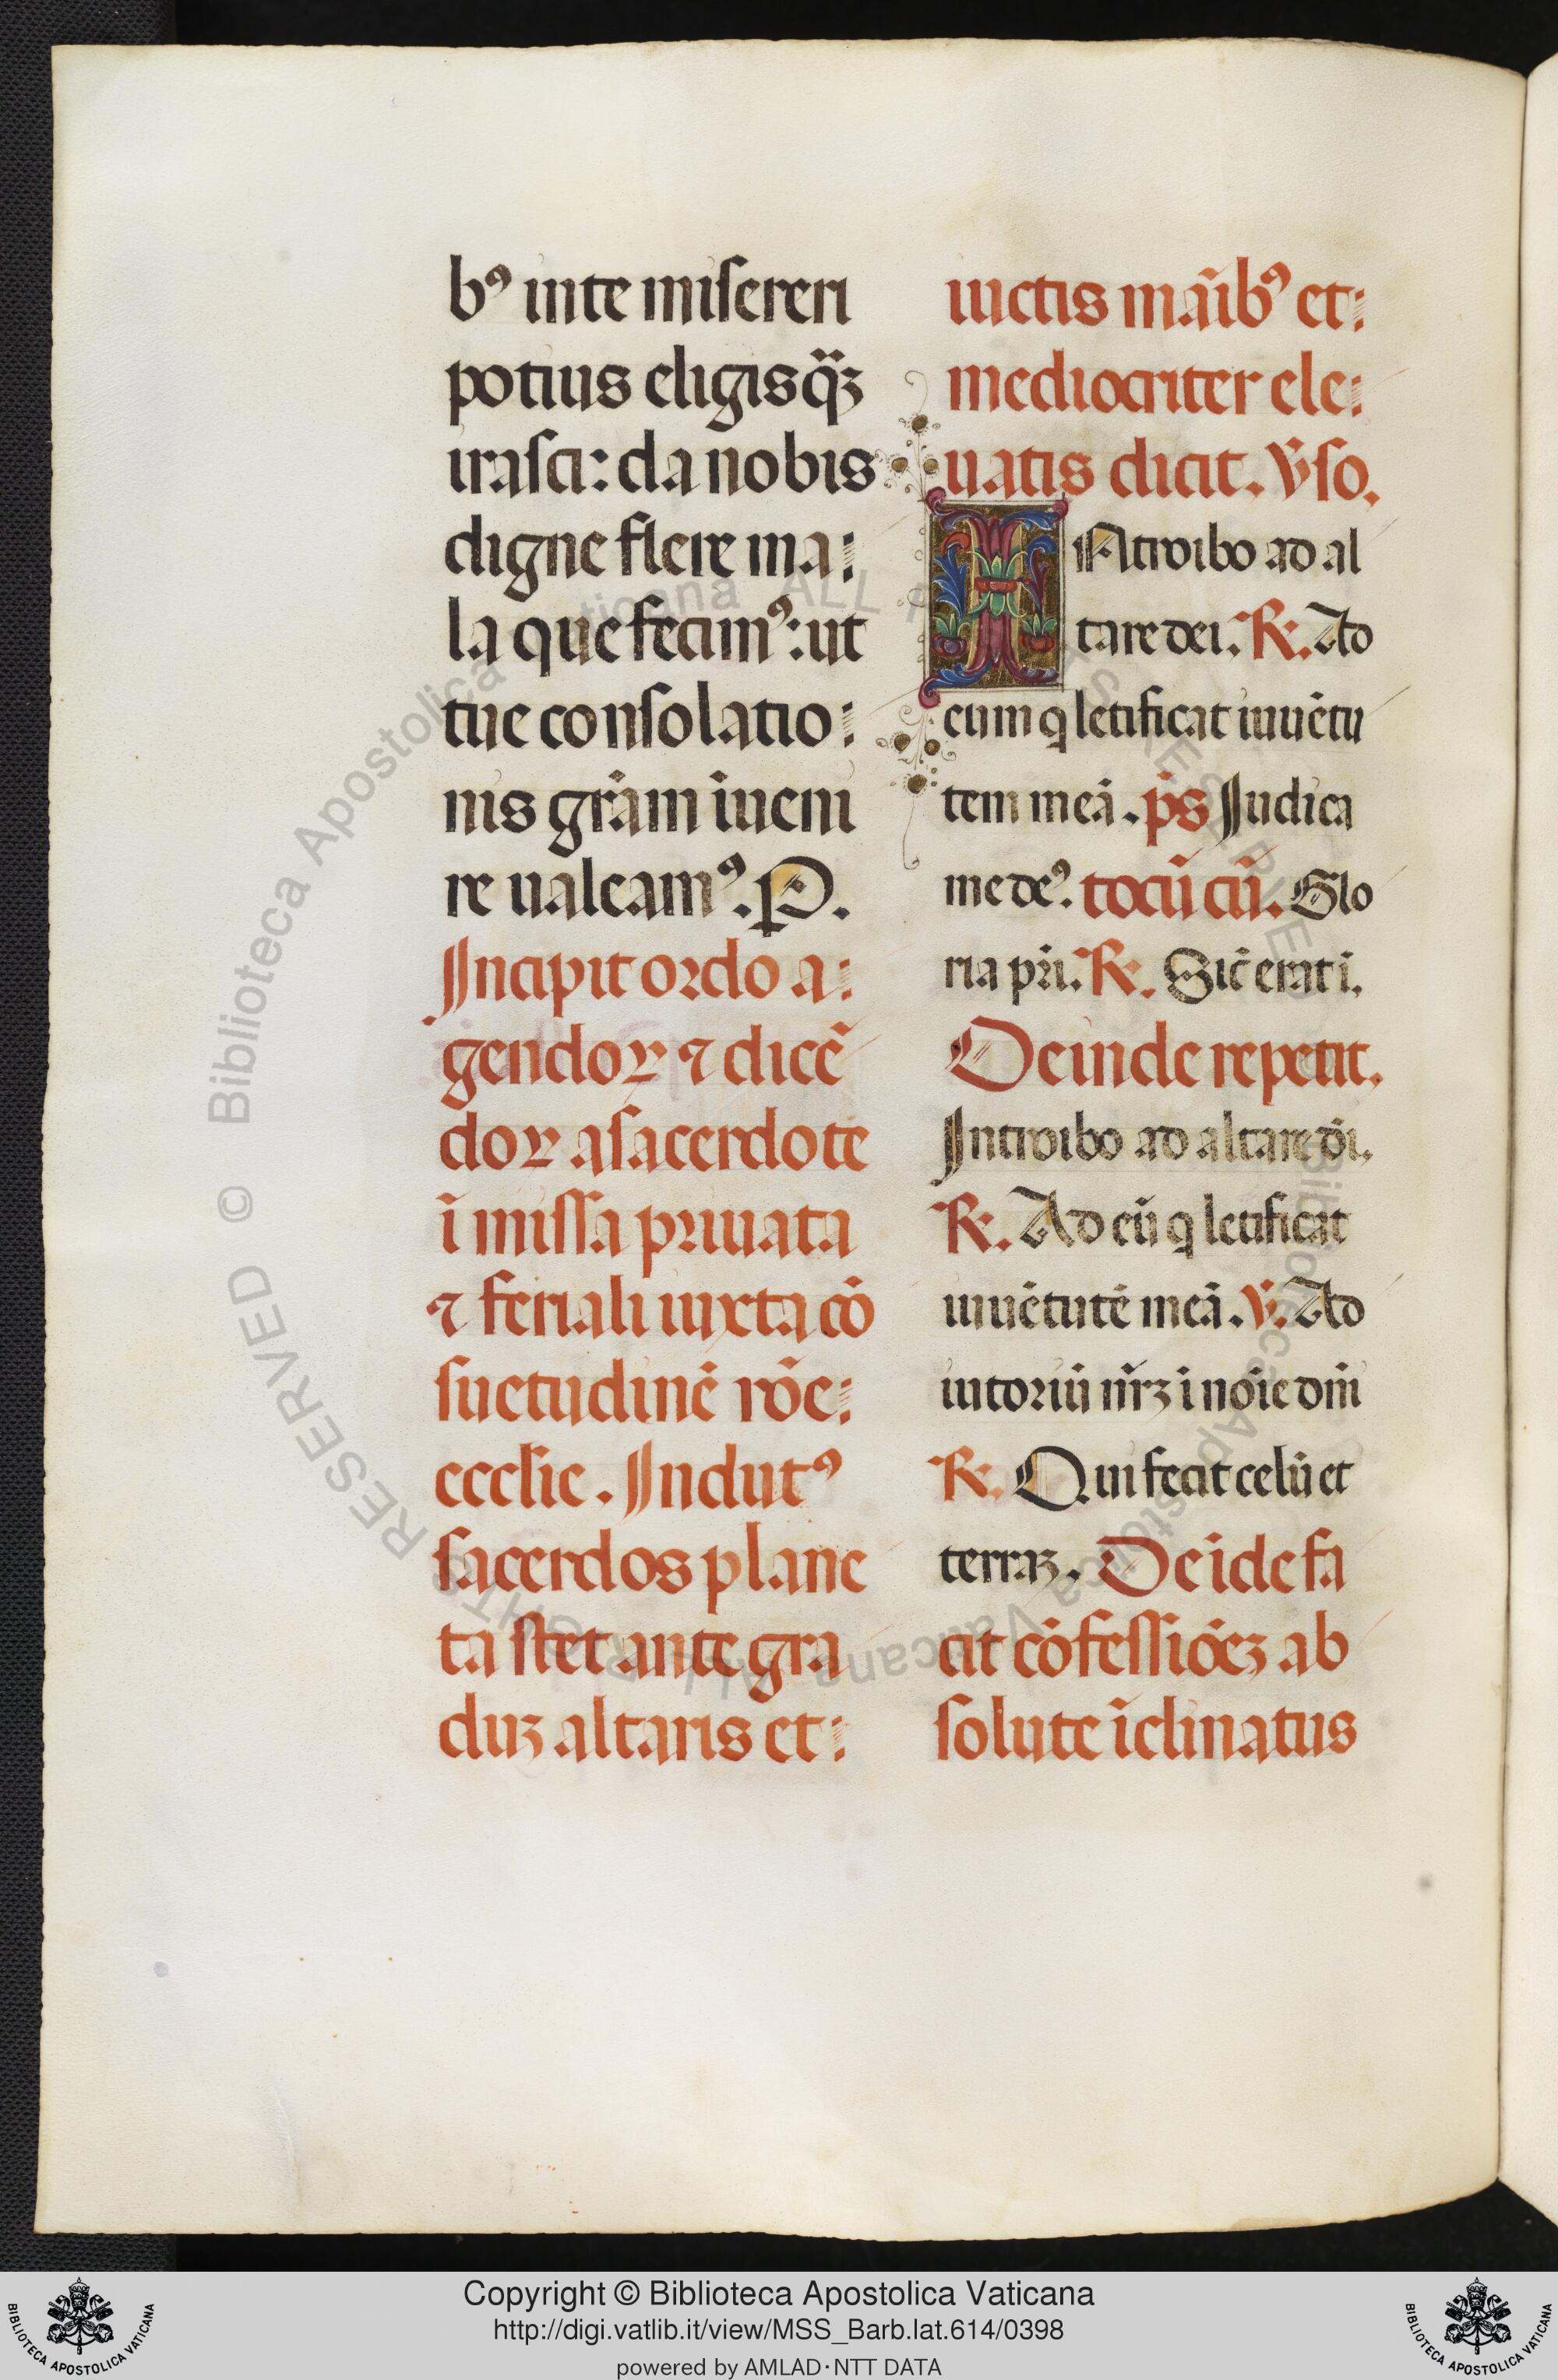 bꝰ in te misereri
potius eligis qͣ̈ꝫ
irasci: da nobis
digne flere ma:
la que fecimꝰ: ut
tue consolatio:
nis gr̄am īueni
re ualeamꝰ. P.
Incipit ordo a:
gendoꝝ ⁊ dicē
doꝝ a sacerdote
ī missa priuata
⁊ feriali iuxta cō
suetudinē rōe:
ecclīe. Indutꝰ
sacerdos plane
ta stet ante gra
duꝫ altaris et:
iuctis māibꝰ et:
mediocriter ele:
uatis dicit. v̄so.
INtroibo ad al
tare dei. ℟. Ad
eum q letificat iuuētu
tem meā. ps̄ Iudica
me deꝰ. tocū cū. Glo
ria pr̄i. ℟. Sic̄ erat ī.
Deinde repetit.
Introibo ad altare dī.
℟. Ad eū q letificat
iuuētutē meā. ℣. Ad
iutoriū nr̄ꝫ ī noīe dn̄i
℟. Qui fecit celū et
terraꝫ. Deīde fa
cit cōfessiōeꝫ ab
solute īclinatus
© Biblioteca Apostolica Vaticana ALL RIGHTS RESERVED
Copyright © Biblioteca Apostolica Vaticana
http://digi.vatlib.it/view/MSS_Barb.lat.614/0398
powered by AMLAD·NTT DATA
BIBLIOTECA APOSTOLICA VATICANA
BIBLIOTECA APOSTOLICA VATICANA